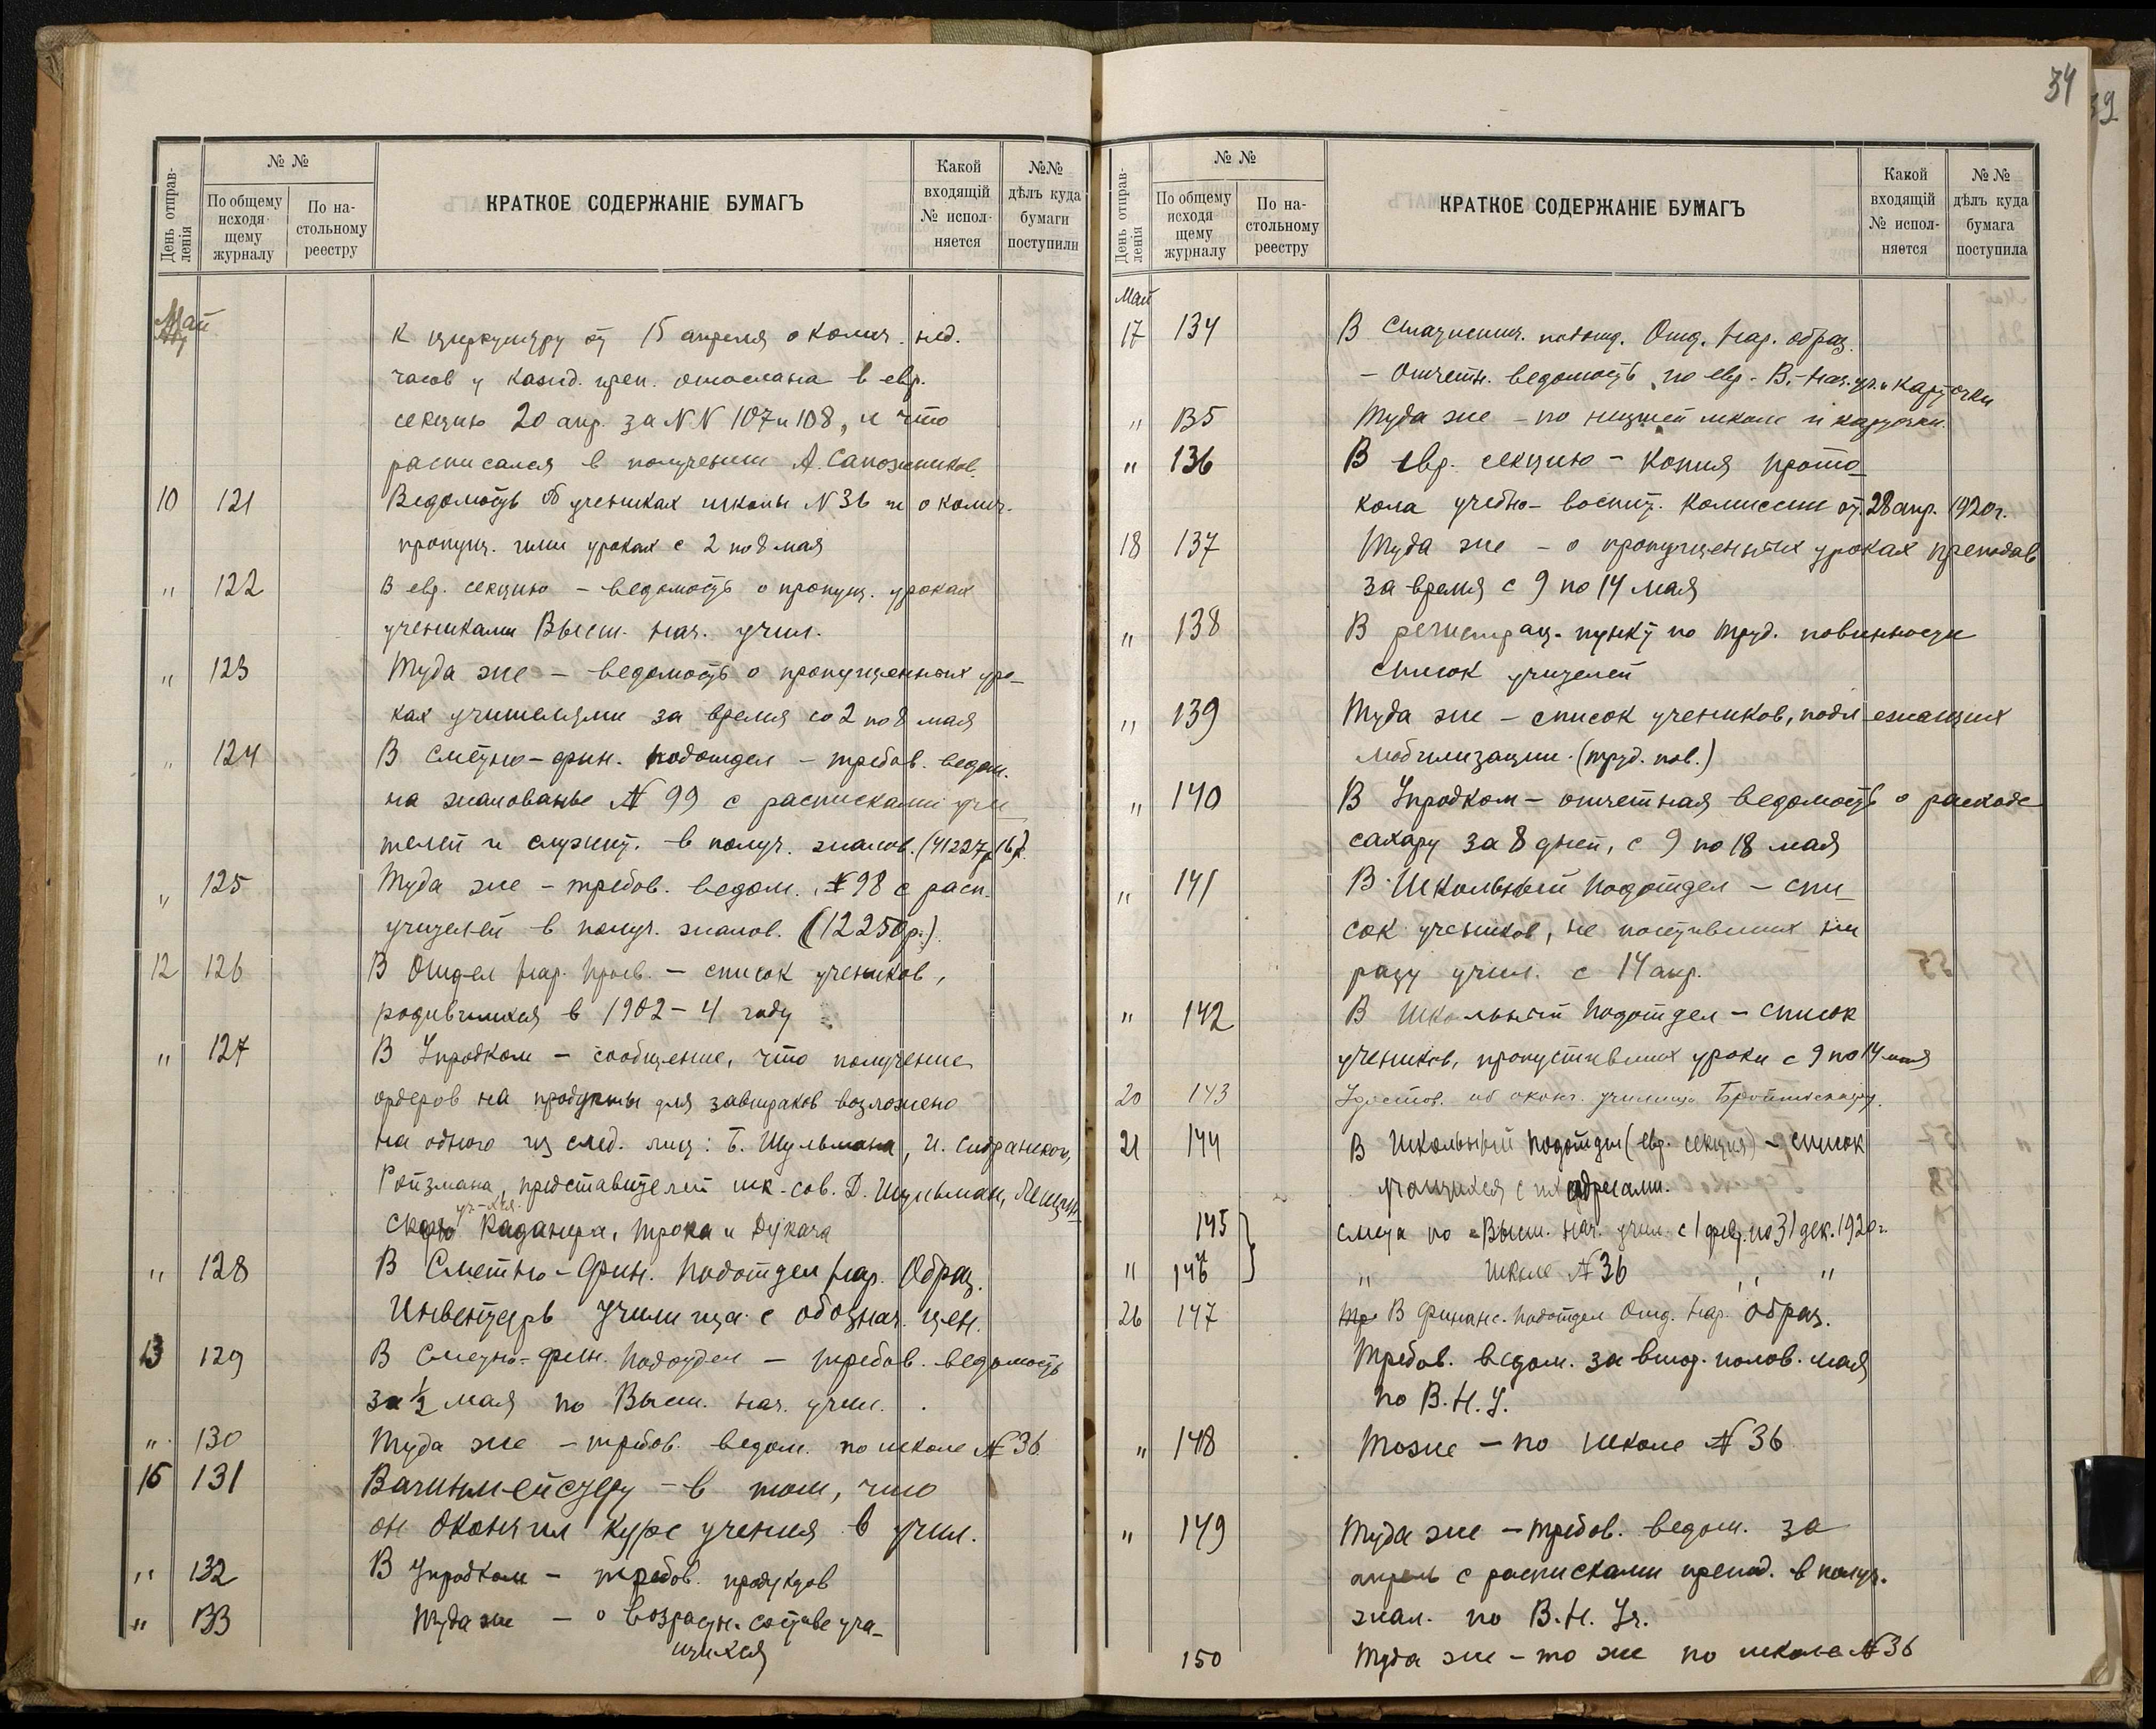 34
39
День отправ-
ленія
№ №
По общему
исходя-
щему
журналу
По на-
стольному
реестру
КРАТКОЕ СОДЕРЖАНІЕ БУМАГЪ
Какой
входящій
№ испол-
няется
№№
дѣлъ куда
бумаги
поступили
Май
К циркуляру от 15 апреля о колич. нед.
часов у кажд. преп. отослана в евр.
секцию 20 апр. за NN 107 и 108, и что
расписался в получении А. Сапожников
10 121 Ведомость об учениках школы N 36 и о колич.
пропущ. ими уроках с 2 по 8 мая
" 122 В евр. секцию – ведомость о пропущ. уроках
учениками Высш. нач. учил.
" 123 Туда же – ведомость о пропущенных уро-
ках учителями за время со 2 по 8 мая
" 124 В Сметно-фин. подотдел – требов. ведом.
на жалованье № 99 с расписками учи
телей и служит. в получ. жалов. (41227 р. 16 к.)
" 125 Туда же – требов. ведом. № 98 с расп.
учителей в получ. жалов. (12250 р.)
12 126 В Отдел Нар. Просв. – список учеников,
родившихся в 1902–4 году
" 127 В Упродком – сообщение, что получение
ордеров на продукты для завтраков возложено
на одного из след. лиц: Б. Шульмана, И.
Ройзмана, представителей шк. сов. Д. Шульман,
уч-хся
Каданера, Трока и Дукача
" 128 В Сметно-Фин. Подотдел Нар. Образ.
Инвентарь училища с обознач. цен.
13 129 В Сметно-Фин. Подотдел – требов. ведомость
за ½ мая по Высш. нач. учил.
" 130 Туда же – требов. ведом. по школе № 36
15 131 Вагинмейстеру – в том, что
он окончил курс учения в учил.
" 132 В Упродком – требов. продуктов
" 133 Туда же – о возрастн. составе уча-
щихся
День отправ-
ленія
№ №
По общему
исходя
щему
журналу
По на-
стольному
реестру
КРАТКОЕ СОДЕРЖАНІЕ БУМАГЪ
Какой
входящій
№ испол-
няется
№ №
дѣлъ куда
бумага
поступила
Май
17 134 В Статистич. подотд. Отд. Нар. образ.
– Отчетн. ведомость по евр. В. Нач. уч. и карточки
" 135 Туда же – по низшей школе и карточки.
" 136 В евр. секцию – копия прото-
кола учебно-воспит. Комиссии от 28 апр. 1920 г.
18 137 Туда же – о пропущенных уроках преподав
за время с 9 по 14 мая
" 138 В регистрац. пункт по труд. повинности
список учителей
" 139 Туда же – список учеников, подлежащих
мобилизации (труд. пов.)
" 140 В Упродком – отчетная ведомость о расходе
сахару за 8 дней, с 9 по 18 мая
" 141 В Школьный Подотдел – спи-
сок учеников, не посетивших ни
разу учил. с 14 апр.
" 142 В Школьный Подотдел – список
учеников, пропустивших уроки с 9 по 14 мая
20 143 Удостов. об оконч. училища
21 144 В Школьный Подотдел (евр. секция) – список
учащихся с их адресами.
145 Смета по Высш. нач. учил. с 1 февр. по 31 дек. 1920 г.
" 146 " Школе № 36 " "
26 147 В Финанс. Подотдел Отд. Нар. Образ.
Требов. ведом. за втор. полов. мая
по В.Н.У.
" 148 Тоже – по школе № 36
" 149 Туда же – требов. ведом. за
апрель с расписками препод. в получ.
жал. по В.Н. Уч.
150 Туда же – то же по школе № 36